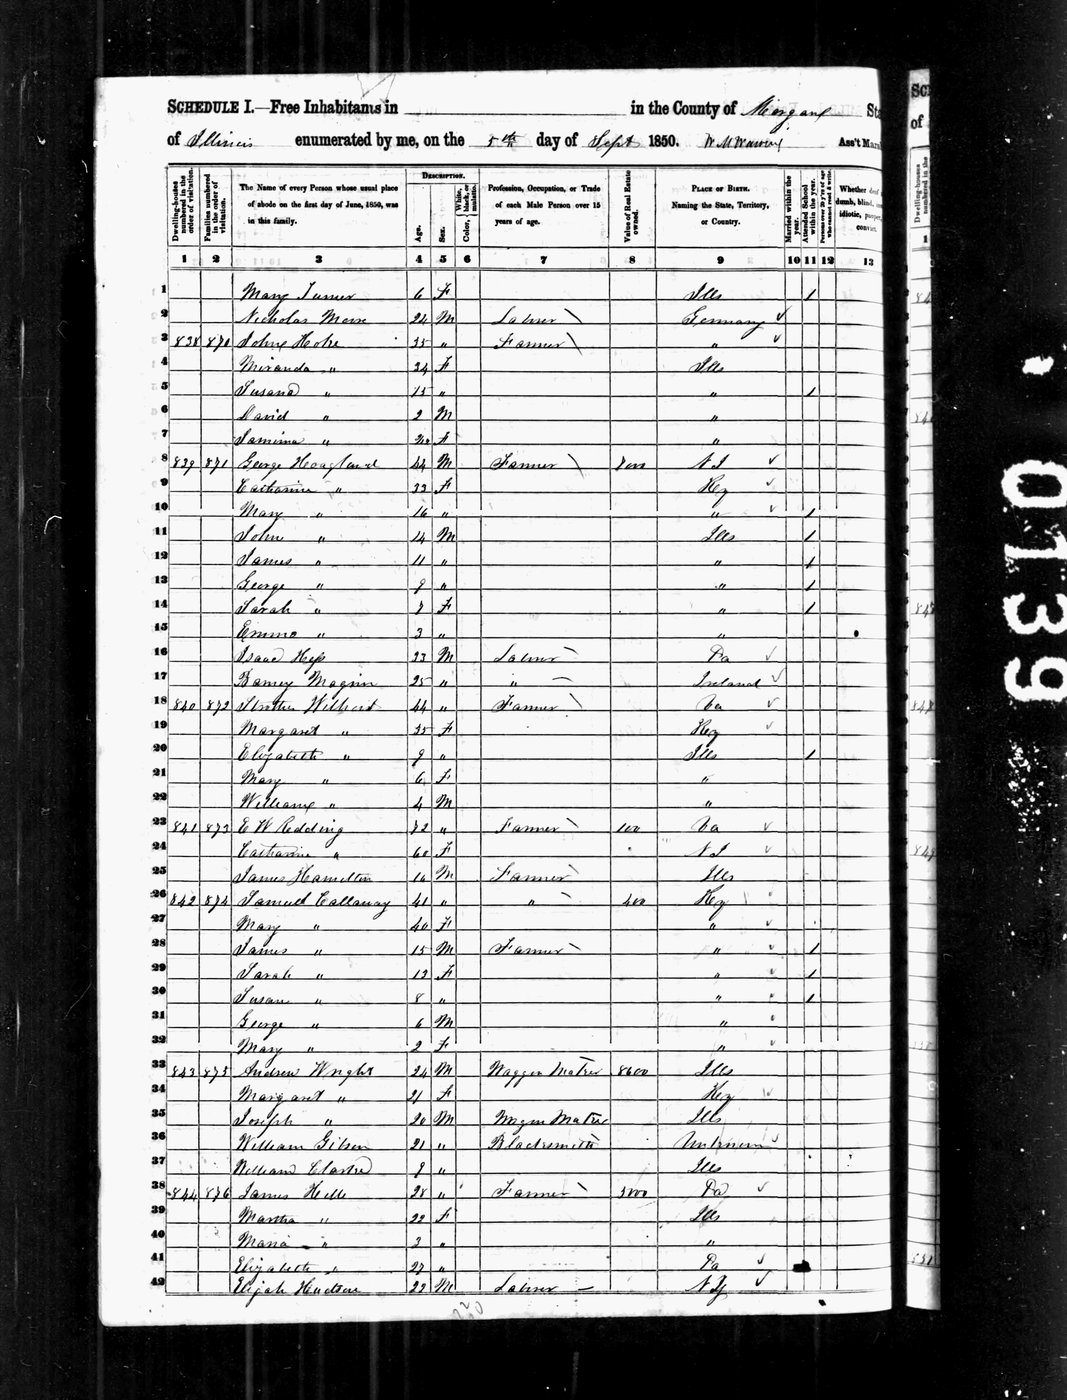 SCHEDULE I.—Free Inhabitants in in the County of Morgan Sta
of Illinois enumerated by me, on the 5th day of Sept 1850. Ass't Marsh
Dwelling-houses numbered in the order of visitation.
Families numbered in the order of visitation.
The Name of every Person whose usual place of abode on the first day of June, 1850, was in this family.
DESCRIPTION.
Age.
Sex.
Color, White, black, or mulatto.
Profession, Occupation, or Trade of each Male Person over 15 years of age.
Value of Real Estate owned.
PLACE OF BIRTH. Naming the State, Territory, or Country.
Married within the year.
Attended School within the year.
Persons over 20 y'rs of age who cannot read & write.
Whether deaf dumb, blind, idiotic, pauper, convict.
1 2 3 4 5 6 7 8 9 10 11 12 13
1 Mary Turner 6 F Ills 1
2 Nicholas 24 M Laborer Germany
3 838 870 35 " Farmer "
4 Miranda " 34 F Ills
5 Susana " 15 " " 1
6 David " 2 M "
7 " F "
8 839 871 George Hoagland 44 M Farmer N J
9 Catharine " 33 F Ky
10 Mary " 16 " " 1
11 John " 14 M Ills 1
12 James " 11 " " 1
13 George " 9 " " 1
14 Sarah " 7 F " 1
15 Emma " 3 " "
16 Isaac Hess 23 M Laborer Pa
17 Barney Maginn 25 " " Ireland
18 840 872 44 " Farmer Va
19 Margaret " 35 F Ky
20 Elizabeth " 9 " Ills 1
21 Mary " 6 F "
22 William " 4 M "
23 841 873 E W Redding 72 " Farmer 100 Va
24 Catharine " 60 F N J
25 James Hamilton 16 M Farmer Ills
26 842 874 Samuel Callaway 41 " " 400 Ky
27 Mary " 40 F "
28 James " 15 M Farmer " 1
29 Sarah " 13 F " 1
30 Susan " 8 " " 1
31 George " 6 M "
32 Mary " 2 F "
33 843 875 Andrew Wright 24 M Waggon Maker 8600 Ills
34 Margaret " 21 F Ky
35 Joseph " 20 M Wagon Maker Ills
36 William Gibson 21 " Blacksmith Unknown
37 William Clarke 9 " Ills
38 844 876 James Hills 28 " Farmer Pa
39 Martha " 22 F Ills
40 Maria " 3 " "
41 Elizabeth " 27 " Pa
42 Elijah Hudson 22 M Laborer N Y
0139